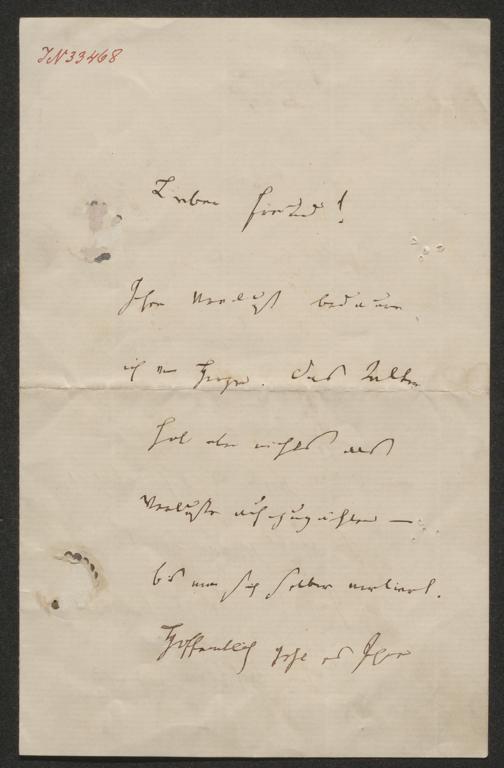 IN 33468
Lieber Freund!
Ihren Verlust bedaure
ich von Herzen. Das Leben
hat aber nichts als
Verluste aufzuweisen —
bis man sich selber verliert.
Hoffentlich geht es Ihnen